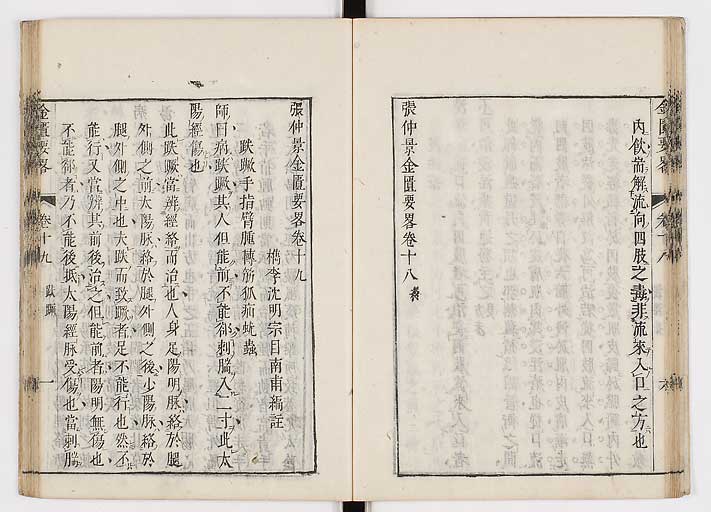 內飲當解流向四肢之毒非流來入口之方也
張仲景金匱要畧卷十八
金匱要畧
卷十八
張仲景金匱要畧卷十九
檇李沈明宗目南甫編註
趺蹶手指臂腫轉筋狐疝蚘蟲
師曰病趺蹶其人但能前不能卻刺腨入二寸此太
陽經傷也
此趺蹶當辨經絡而治也人身足陽明脉絡於腿
外側之前太陽脉絡於腿外側之後少陽脉絡於
腿外側之中也夫趺而致蹶者足不能行也然不
能行又當辨其前後治之但能前者陽明無傷也
不能卻者乃不能後抵太陽經脉受傷也當刺腨
金匱要畧
卷十九
趺蹶
一